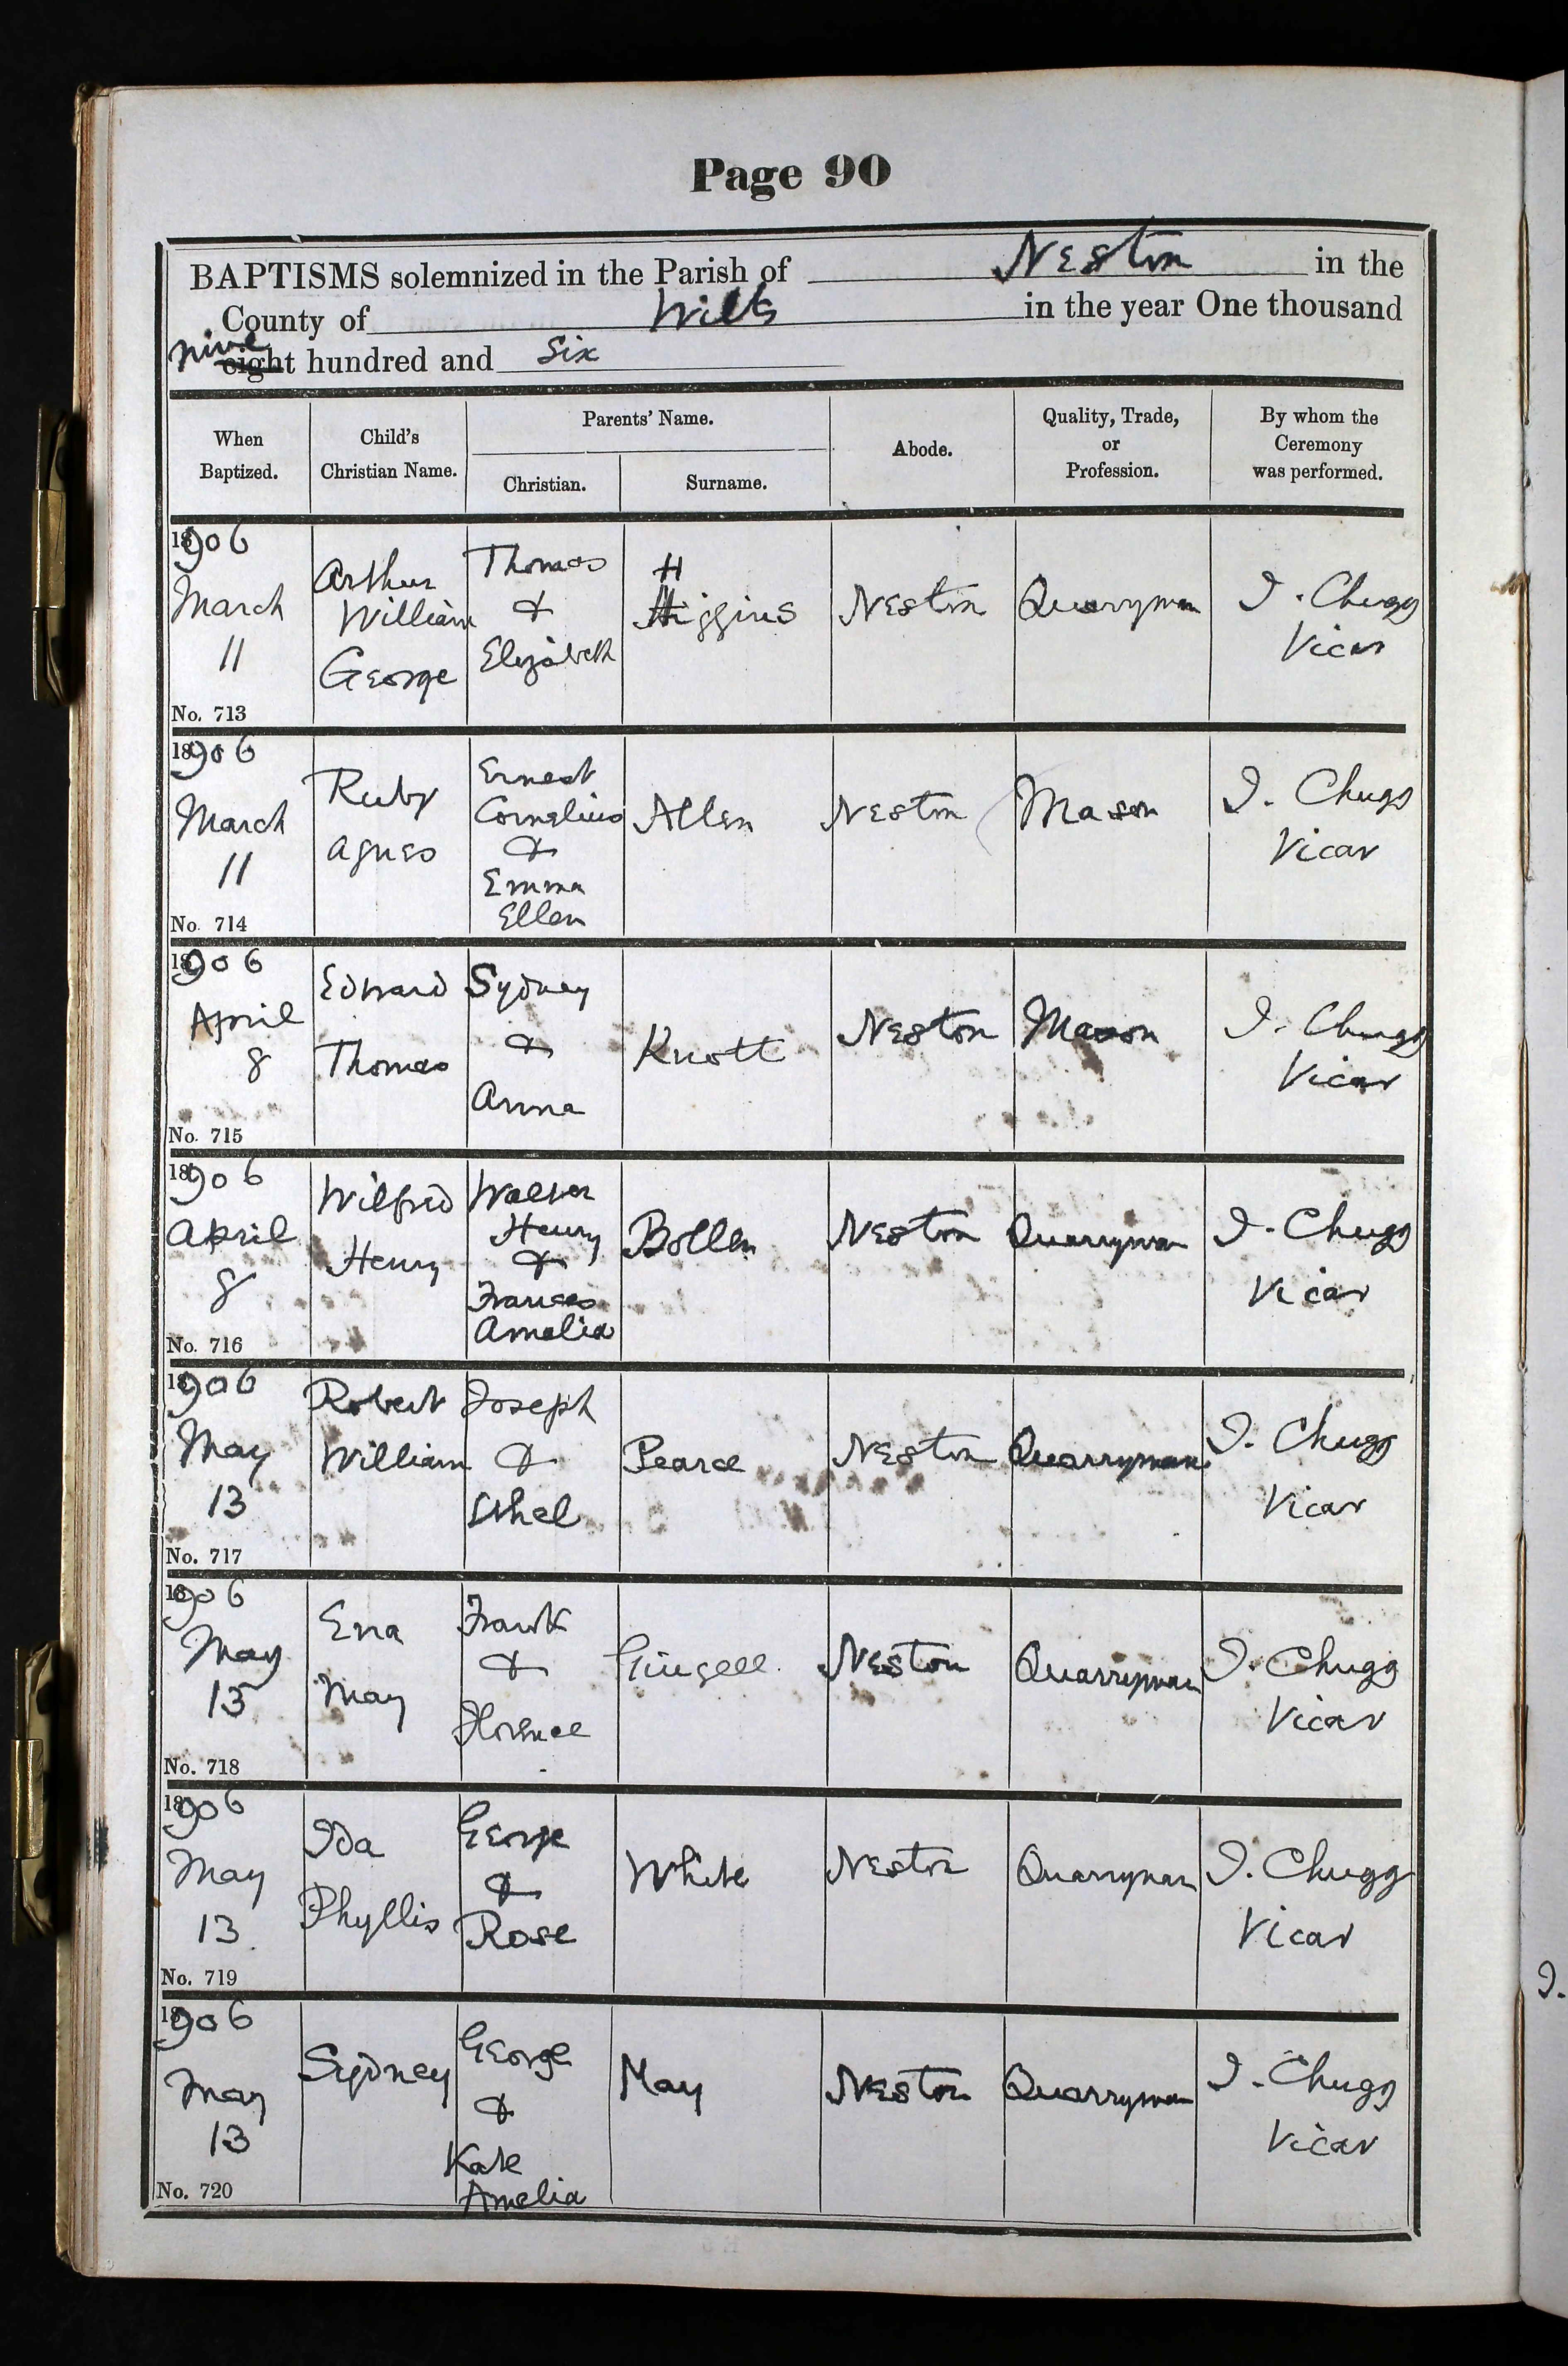 Page 90
BAPTISMS solemnized in the Parish of Neston in the
County of Wilts in the year One thousand
nine eight hundred and Six
When Baptized.
Child's Christian Name.
Parents' Name.
Christian.
Surname.
Abode.
Quality, Trade, or Profession.
By whom the Ceremony was performed.
1906
March
11
No. 713
Arthur
William
George
Thomas
&
Elizabeth
H
Higgins
Neston
Quarryman
I. Chugg
Vicar
1906
March
11
No. 714
Ruby
Agnes
Ernest
Cornelius
&
Emma
Ellen
Allen
Neston
Mason
I. Chugg
Vicar
1906
April
8
No. 715
Edward
Thomas
Sydney
&
Anna
Knott
Neston
Mason
I. Chugg
Vicar
1906
April
8
No. 716
Wilfrid
Henry
Walter
Henry
&
Frances
Amelia
Bollen
Neston
Quarryman
I. Chugg
Vicar
1906
May
13
No. 717
Robert
William
Joseph
&
Ethel
Pearce
Neston
Quarryman
I. Chugg
Vicar
1906
May
13
No. 718
Ena
May
Frank
&
Florence
Gingell
Neston
Quarryman
I. Chugg
Vicar
1906
May
13
No. 719
Ida
Phyllis
George
&
Rose
White
Neston
Quarryman
I. Chugg
Vicar
1906
May
13
No. 720
Sydney
George
&
Kate
Amelia
May
Neston
Quarryman
I. Chugg
Vicar
I.